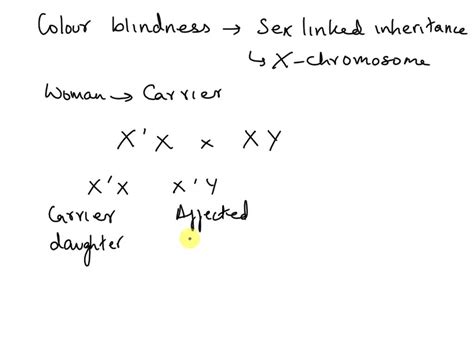 Colour blindness → Sex linked inheritance
↳ X-chromosome
Woman → Carrier
X'X × XY
X'X X'Y
Carrier Affected
daughter